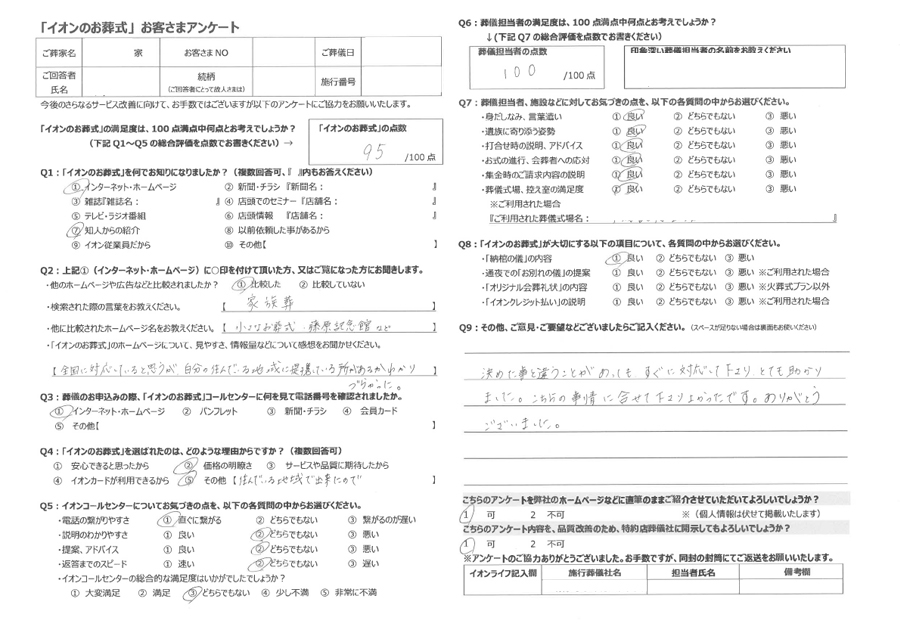 「イオンのお葬式」お客さまアンケート
ご葬家名 家 お客さまNO ご葬儀日
ご回答者氏名 続柄(ご回答者にとって故人さまは) 施行番号
今後のさらなるサービス改善に向けて、お手数ではございますが以下のアンケートにご協力をお願いいたします。
「イオンのお葬式」の満足度は、100点満点中何点とお考えでしょうか?
(下記Q1~Q5の総合評価を点数でお書きください)→
「イオンのお葬式」の点数
95 /100点
Q1:「イオンのお葬式」を何でお知りになりましたか?(複数回答可、『 』内もお答えください)
① インターネット・ホームページ ② 新聞・チラシ『新聞名: 』
③ 雑誌『雑誌名: 』 ④ 店頭でのセミナー『店舗名: 』
⑤ テレビ・ラジオ番組 ⑥ 店頭情報 『店舗名: 』
⑦ 知人からの紹介 ⑧ 以前依頼した事があるから
⑨ イオン従業員だから ⑩ その他【 】
Q2:上記①(インターネット・ホームページ)に○印を付けて頂いた方、又はご覧になった方にお聞きします。
・他のホームページや広告などと比較されましたか? ① 比較した ② 比較していない
・検索された際の言葉をお教えください。 【 家族葬 】
・他に比較されたホームページ名をお教えください。【 小さなお葬式・藤原記念館など 】
・「イオンのお葬式」のホームページについて、見やすさ、情報量などについて感想をお聞かせください。
【 全国に対応していると思うが自分の住んでいる地域に提携している所があるかわかりづらかった。 】
Q3:葬儀のお申込みの際、「イオンのお葬式」コールセンターに何を見て電話番号を確認されましたか。
① インターネット・ホームページ ② パンフレット ③ 新聞・チラシ ④ 会員カード
⑤ その他【 】
Q4:「イオンのお葬式」を選ばれたのは、どのような理由からですか?(複数回答可)
① 安心できると思ったから ② 価格の明瞭さ ③ サービスや品質に期待したから
④ イオンカードが利用できるから ⑤ その他【住んでいる地域で出来たので 】
Q5:イオンコールセンターについてお気づきの点を、以下の各質問の中からお選びください。
・電話の繋がりやすさ ① 直ぐに繋がる ② どちらでもない ③ 繋がるのが遅い
・説明のわかりやすさ ① 良い ② どちらでもない ③ 悪い
・提案、アドバイス ① 良い ② どちらでもない ③ 悪い
・返答までのスピード ① 速い ② どちらでもない ③ 遅い
・イオンコールセンターの総合的な満足度はいかがでしたでしょうか?
① 大変満足 ② 満足 ③ どちらでもない ④ 少し不満 ⑤ 非常に不満
Q6:葬儀担当者の満足度は、100点満点中何点とお考えでしょうか?
↓(下記Q7の総合評価を点数でお書きください)
葬儀担当者の点数
100 /100点
印象深い葬儀担当者の名前をお教えください
Q7:葬儀担当者、施設などに対してお気づきの点を、以下の各質問の中からお選びください。
・身だしなみ、言葉遣い ① 良い ② どちらでもない ③ 悪い
・遺族に寄り添う姿勢 ① 良い ② どちらでもない ③ 悪い
・打合せ時の説明、アドバイス ① 良い ② どちらでもない ③ 悪い
・お式の進行、会葬者への応対 ① 良い ② どちらでもない ③ 悪い
・集金時のご請求内容の説明 ① 良い ② どちらでもない ③ 悪い
・葬儀式場、控え室の満足度 ① 良い ② どちらでもない ③ 悪い
※ご利用された場合
『ご利用された葬儀式場名: 』
Q8:「イオンのお葬式」が大切にする以下の項目について、各質問の中からお選びください。
・「納棺の儀」の内容 ① 良い ② どちらでもない ③ 悪い
・通夜での「お別れの儀」の提案 ① 良い ② どちらでもない ③ 悪い ※ご利用された場合
・「オリジナル会葬礼状」の内容 ① 良い ② どちらでもない ③ 悪い ※火葬式プラン以外
・「イオンクレジット払い」の説明 ① 良い ② どちらでもない ③ 悪い ※ご利用された場合
Q9:その他、ご意見・ご要望などございましたらご記入ください。(スペースが足りない場合は裏面もお使いください)
決めた事と違うことがあってもすぐに対応して下さりとても助かり
ました。こちらの事情に合せて下さりよかったです。ありがとう
ございました。
こちらのアンケートを弊社のホームページなどに直筆のままご紹介させていただいてよろしいでしょうか?
1 可 2 不可 ※(個人情報は伏せて掲載いたします)
こちらのアンケート内容を、品質改善のため、特約店葬儀社に開示してもよろしいでしょうか?
1 可 2 不可
※アンケートのご協力ありがとうございました。お手数ですが、同封の封筒にてご返送をお願いいたします。
イオンライフ記入欄 施行葬儀社名 担当者氏名 備考欄